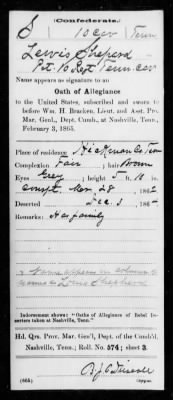 (Confederate.)
S 10 Cav Tenn
Lewis Sheperd
Pvt 10 Regt Tenn. Cav
Name appears as signature to an
Oath of Allegiance
to the United States, subscribed and sworn to
before Wm. H. Bracken, Lieut. and Asst. Pro.
Mar. Gen'l, Dept. Cumb., at Nashville, Tenn.,
February 3, 1865.
Place of residence Hickman Co Tenn
Complexion Fair ; hair Brown
Eyes Grey ; height 5 ft. 10 in.
186
Deserted Dec. 3 , 186
Remarks: Has family
Name appears in column of
names as Lewis Shepherd
Indorsement shows: "Oaths of Allegiance of Rebel De-
serters taken at Nashville, Tenn."
Hd. Qrs. Prov. Mar. Gen'l, Dept. of the Cumb'd,
Nashville, Tenn., Roll No. 574; sheet 3
(865) Copyist.